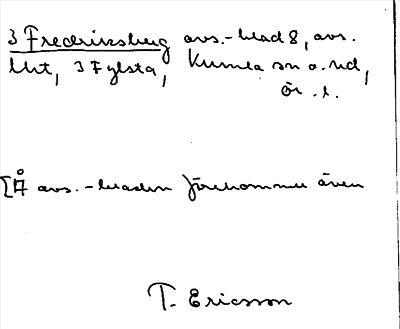 3 Fredriksberg avs.-blad 8, avs.
litt, 3 Fylsta, Kumla sn o. hd,
Ör. l.
[Å avs.-bladen förekommer även
T. Ericsson